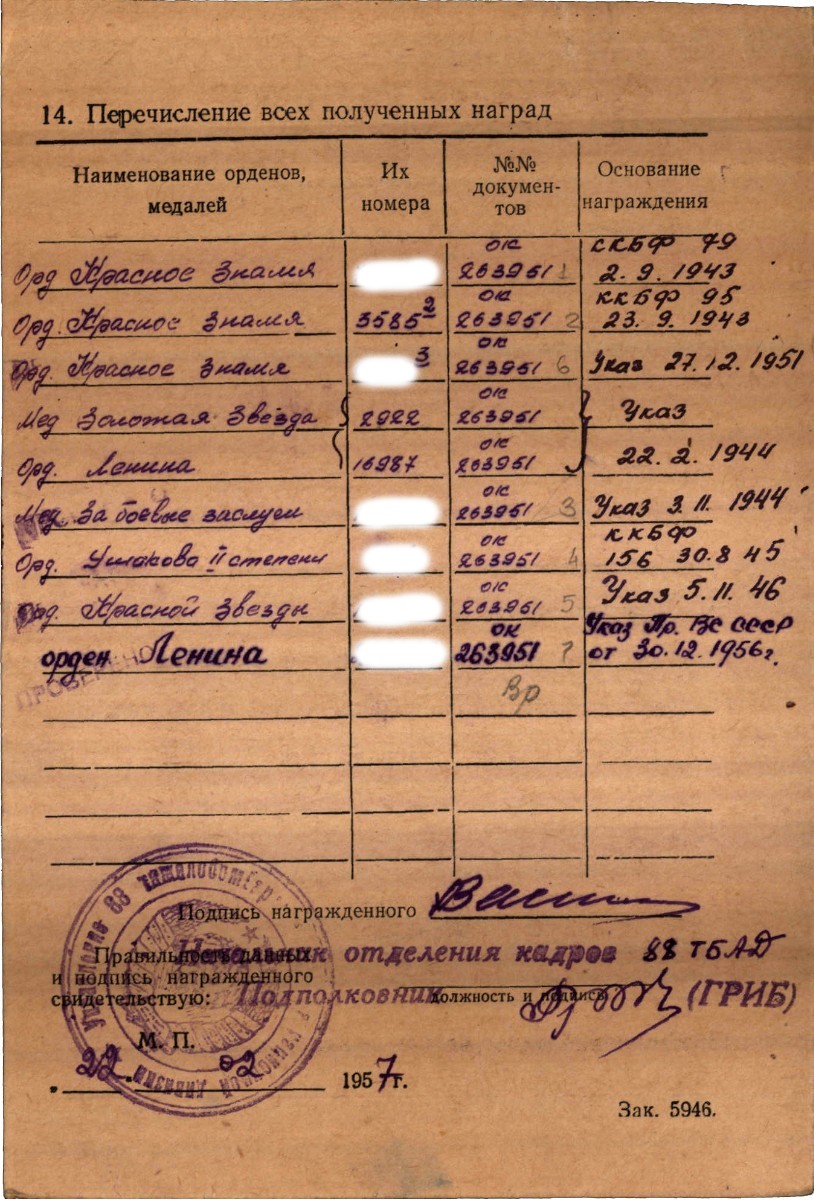 14. Перечисление всех полученных наград
Наименование орденов, медалей
Их номера
№№ документов
Основание награждения
Орд Красное Знамя ОК 263951 1 СКБФ 79 2.9.1943
Орд. Красное Знамя 3585 2 ОК 263951 2 ККБФ 95 23.9.1943
Орд. Красное Знамя 3 ОК 263951 6 Указ 27.12.1951
Мед Золотая Звезда 2922 ОК 263951 Указ
Орд. Ленина 16987 ОК 263951 22.2.1944
Мед. За боевые заслуги ОК 263951 3 Указ 3.11.1944
Орд. Ушакова II степени ОК 263951 4 ККБФ 156 30.8 45
Орд. Красной Звезды ОК 263951 5 Указ 5.11.46
орден Ленина ОК 263951 7 Указ Пр. ВС СССР от 30.12.1956г.
ПРОВЕРЕНО
Вр
Подпись награжденного
Правильность данных и подпись награжденного свидетельствую:
Начальник отделения кадров 88 ТБАД
Подполковник (ГРИБ)
должность и подпись
М. П.
22. 02 1957 г.
Управление 88 авиационной дивизии
Зак. 5946.